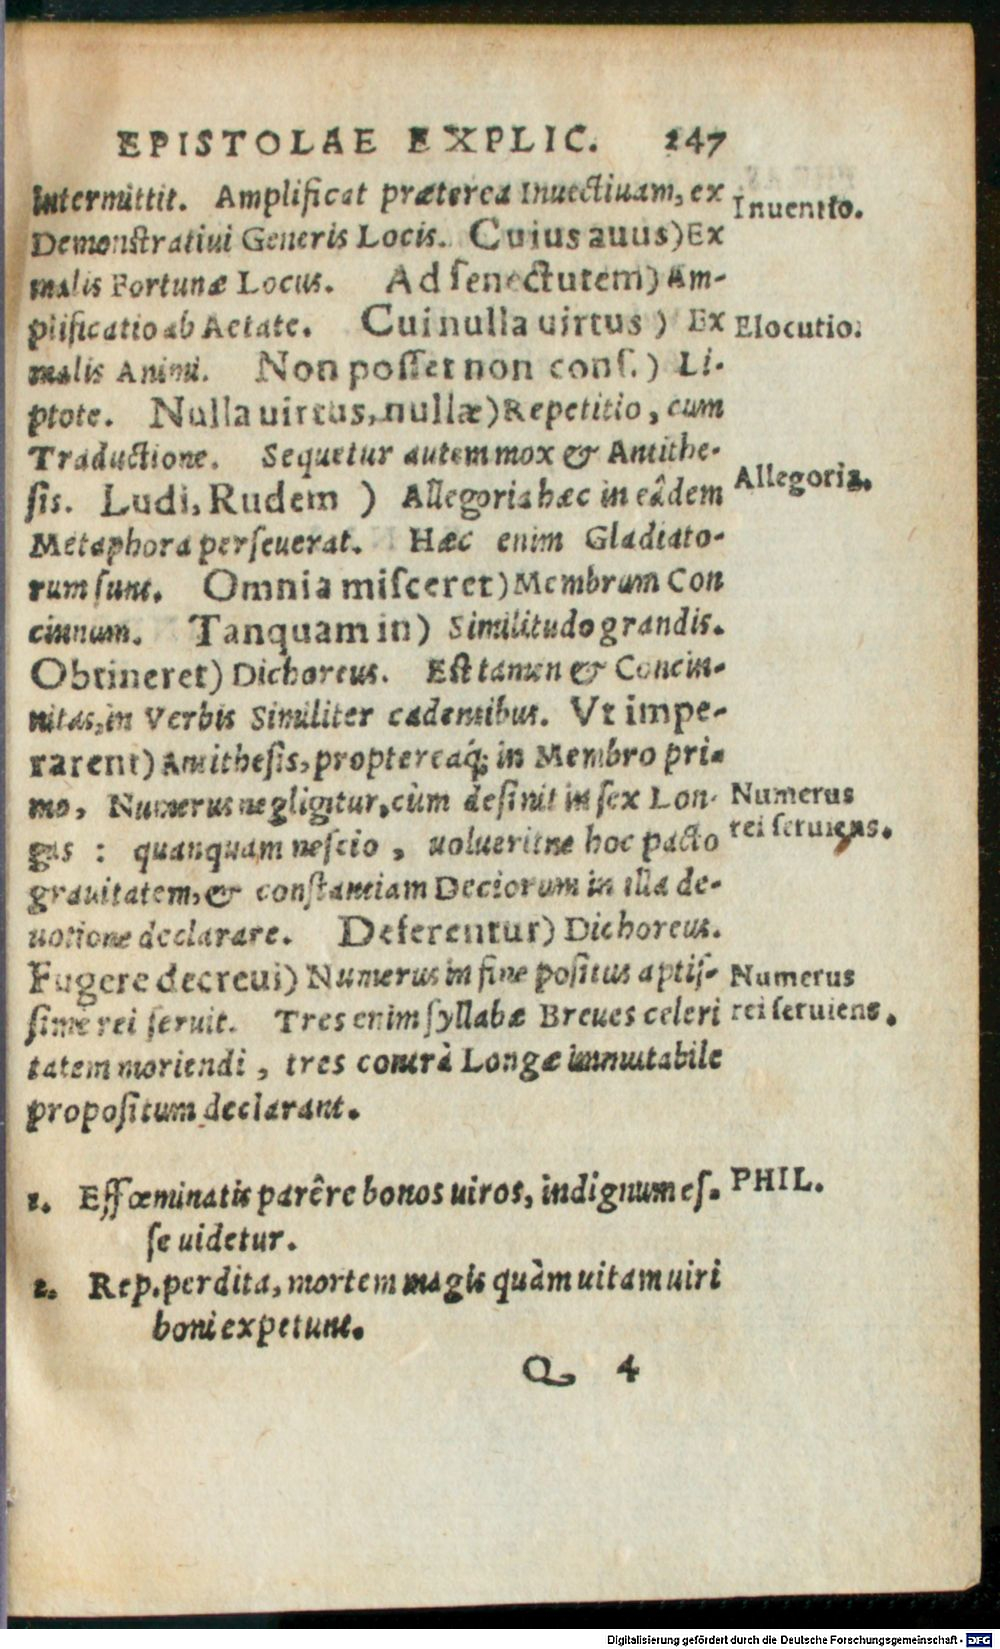 EPISTOLAE EXPLIC. 247
intermittit. Amplificat præterea Inuectiuam, ex
Inuentio.
Demonſtratiui Generis Locis. Cuius auus) Ex
malis Fortunæ Locus. Ad ſenectutem) Am-
plificatio ab Aetate. Cui nulla uirtus ) Ex
Elocutio.
malis Animi. Non poſſet non conſ.) Li-
ptote. Nulla uirtus, nullæ) Repetitio, cum
Traductione. Sequetur autem mox & Antithe-
ſis. Ludi, Rudem ) Allegoria hæc in eâdem
Allegoria.
Metaphora perſeuerat. Hæc enim Gladiato-
rum ſunt. Omnia miſceret) Membrum Con
cinnum. Tanquam in) Similitudo grandis.
Obtineret) Dichoreus. Eſt tamen & Concin-
nitas, in Verbis Similiter cadentibus. Vt impe-
rarent) Antitheſis, propterea\q; in Membro pri-
mo, Numerus negligitur, cùm deſinit in ſex Lon-
Numerus
gas : quanquam neſcio, uolueritne hoc pacto
rei ſeruiens.
grauitatem, & conſtantiam Deciorum in illa de-
uotione declarare. Deferentur) Dichoreus.
Fugere decreui) Numerus in fine poſitus aptiſ-
Numerus
ſimè rei ſeruit. Tres enim ſyllabæ Breues celeri
rei ſeruiens.
tatem moriendi, tres contrà Longæ immutabile
propoſitum declarant.
1. Effœminatis parêre bonos uiros, indignum eſ-
PHIL.
ſe uidetur.
2. Rep. perdita, mortem magis quàm uitam uiri
boni expetunt.
Q 4
Digitalisierung gefördert durch die Deutsche Forschungsgemeinschaft - DFG